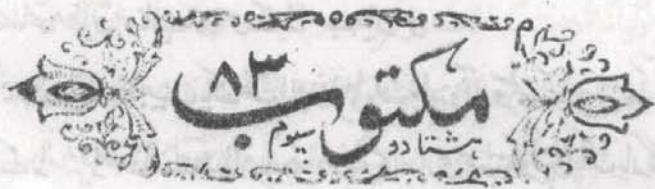 مکتوب ۸۳
ہشتاد و سیوم